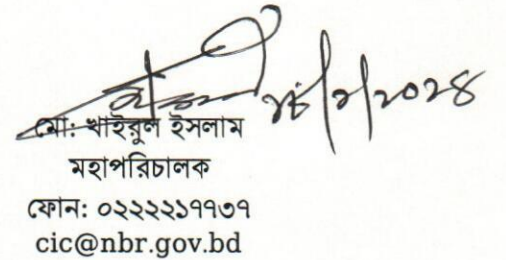 মো: খাইরুল ইসলাম
মহাপরিচালক
ফোন: ০২২২২১৭৭৩৭
cic@nbr.gov.bd